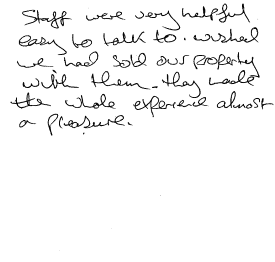 Staff were very helpful
easy to talk to. wished
we had sold our property
with them - they made
the whole experience almost
a pleasure.